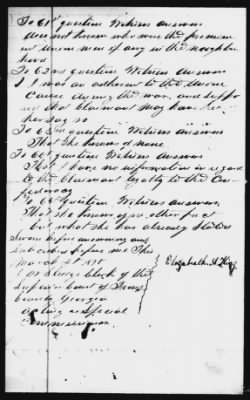 To 61st question Witness answers
does not know who were the prominent
Union men if any in the neighborhood
To 62nd question Witness answers
I was an adherent to the Union
Cause during the war, and
that Claimant may have
say so
To 63rd question Witness answers
That she knows of none
To 64 question Witness answers
That I have no information in regard
to the Claimant loyalty to the Confederacy
To 65 question Witness answers
That she knows of no other fact
but what she has already stated
Sworn before answering and
Subscribed before me This
March 1878
Clerk of the
Superior Court of
County Georgia
acting as Special
Commissioner
Elizabeth A